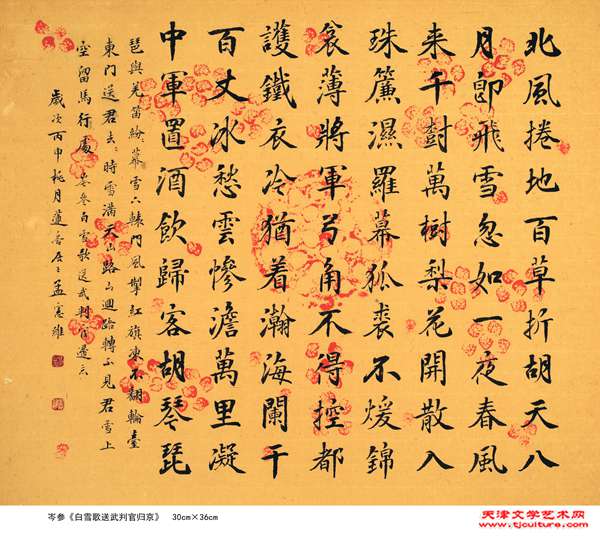 北風捲地百草折胡天八
月即飛雪忽如一夜春風
来千樹萬樹梨花開散入
珠簾濕羅幕狐裘不煖錦
衾薄將軍弓角不得控都
護鐵衣冷猶着瀚海闌干
百丈冰愁雲慘澹萬里凝
中軍置酒飲歸客胡琴琵
琶與羌笛紛〻暮雪下轅門風掣紅旗凍不翻輪臺
東門送君去〻時雪滿天山路山迴路轉不見君雪上
空留馬行處岑參白雪歌送武判官
歲次丙申桃月蓮香居士孟憲維
岑参《白雪歌送武判官归京》 30cm×36cm
天津文学艺术网
www.tjculture.com